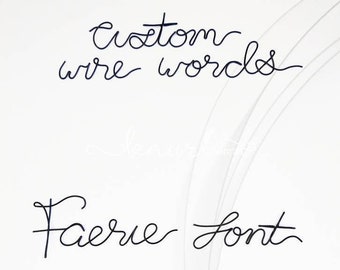 custom
wire words
Faerie font